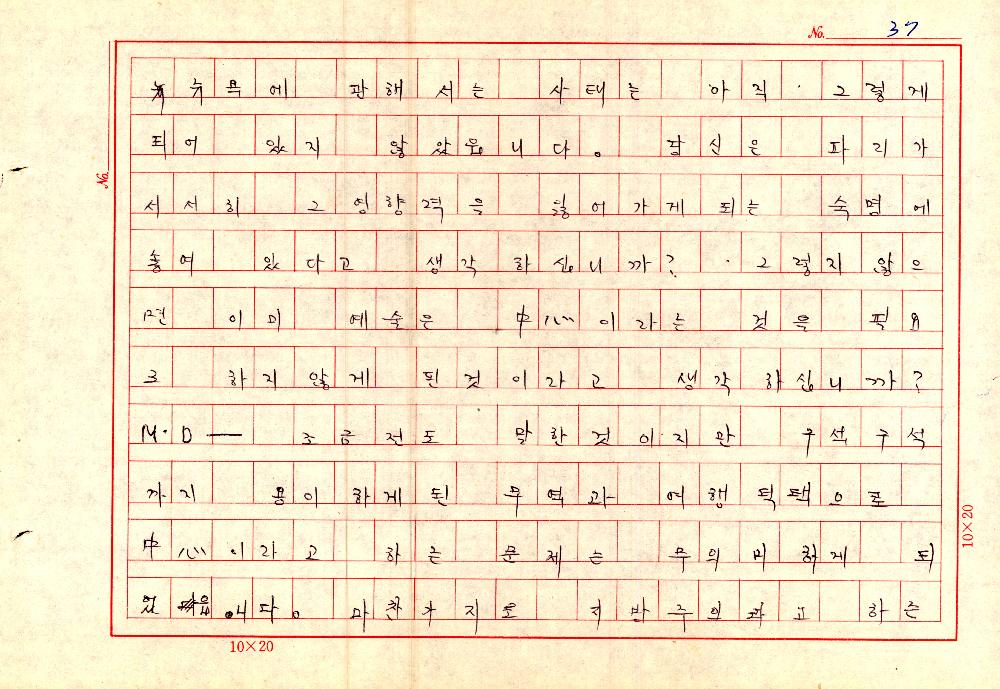 No. 37
뉴욕에 관해서는 사태는 아직 · 그렇게
되어 있지 않았읍니다。 당신은 파리가
서서히 그 영향력을 잃어가게 되는 숙명에
놓여 있다고 생각하십니까? · 그렇지 않으
면 이미 예술은 中心이라는 것을 필요
로 하지 않게 된것이라고 생각하십니까?
M·D — 조금전도 말한것이지만 구석구석
까지 용이하게 된 무역과 여행 턱택으로
中心이라고 하는 문제는 무의미하게 되
었읍니다。 마찬가지로 지반주의라고 하는
No.
10×20
10×20